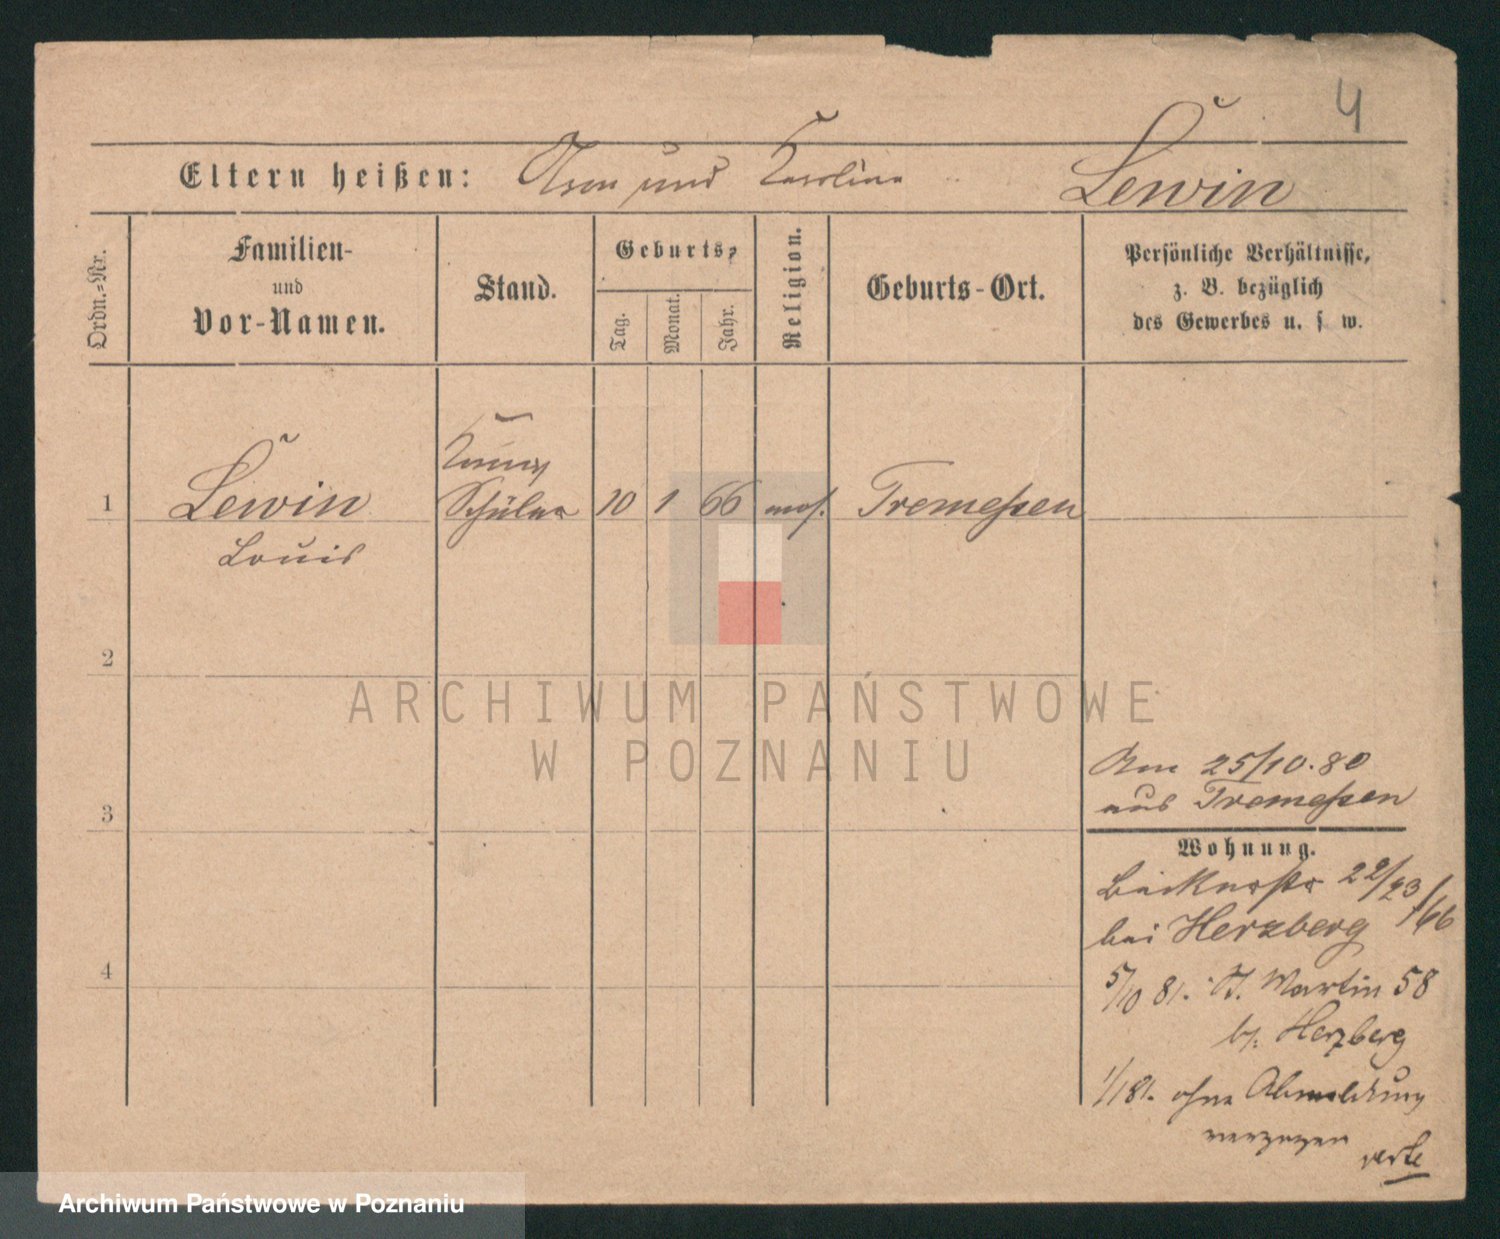 4
Eltern heißen: und Karoline Lewin
Ordn.=Nr.
Familien-
und
Vor-Namen.
Stand.
Geburts=
Tag.
Monat.
Jahr.
Religion.
Geburts-Ort.
Persönliche Verhältnisse,
z. B. bezüglich
des Gewerbes u. s w.
1 Lewin Schüler 10 1 66 mos. Tremeßen
Louis
2
3
4
ARCHIWUM PAŃSTWOWE
W POZNANIU
25/10.80
aus Tremeßen
Wohnung.
22/23
bei Herzberg
5/10 81. St. Martin 58
b/. Herzberg
ohne Abmeldung
verzogen
verte
Archiwum Państwowe w Poznaniu